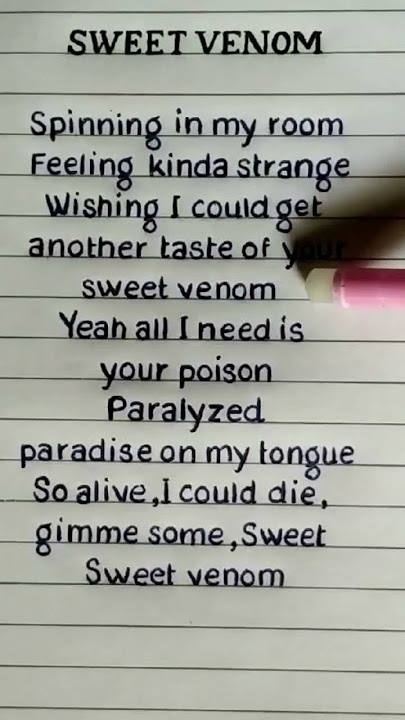 SWEET VENOM
Spinning in my room
Feeling kinda strange
Wishing I could get
another taste of your
sweet venom
Yeah all I need is
your poison
Paralyzed
paradise on my tongue
So alive, I could die,
gimme some, Sweet
Sweet venom